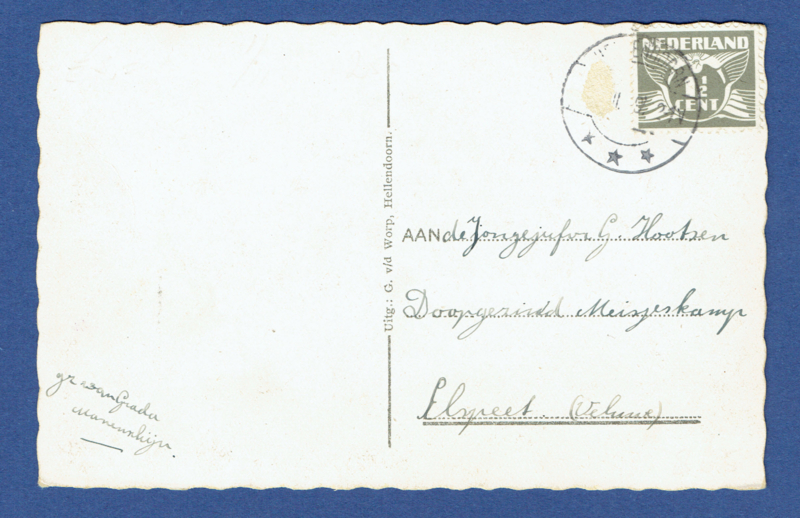 NEDERLAND
1½
CENT
Uitg.: G. v/d Worp, Hellendoorn.
AAN de Jongejufvr G. Hootsen
Doopgezind Meisjeskamp
Elspeet. (Veluwe)
gr van Grada